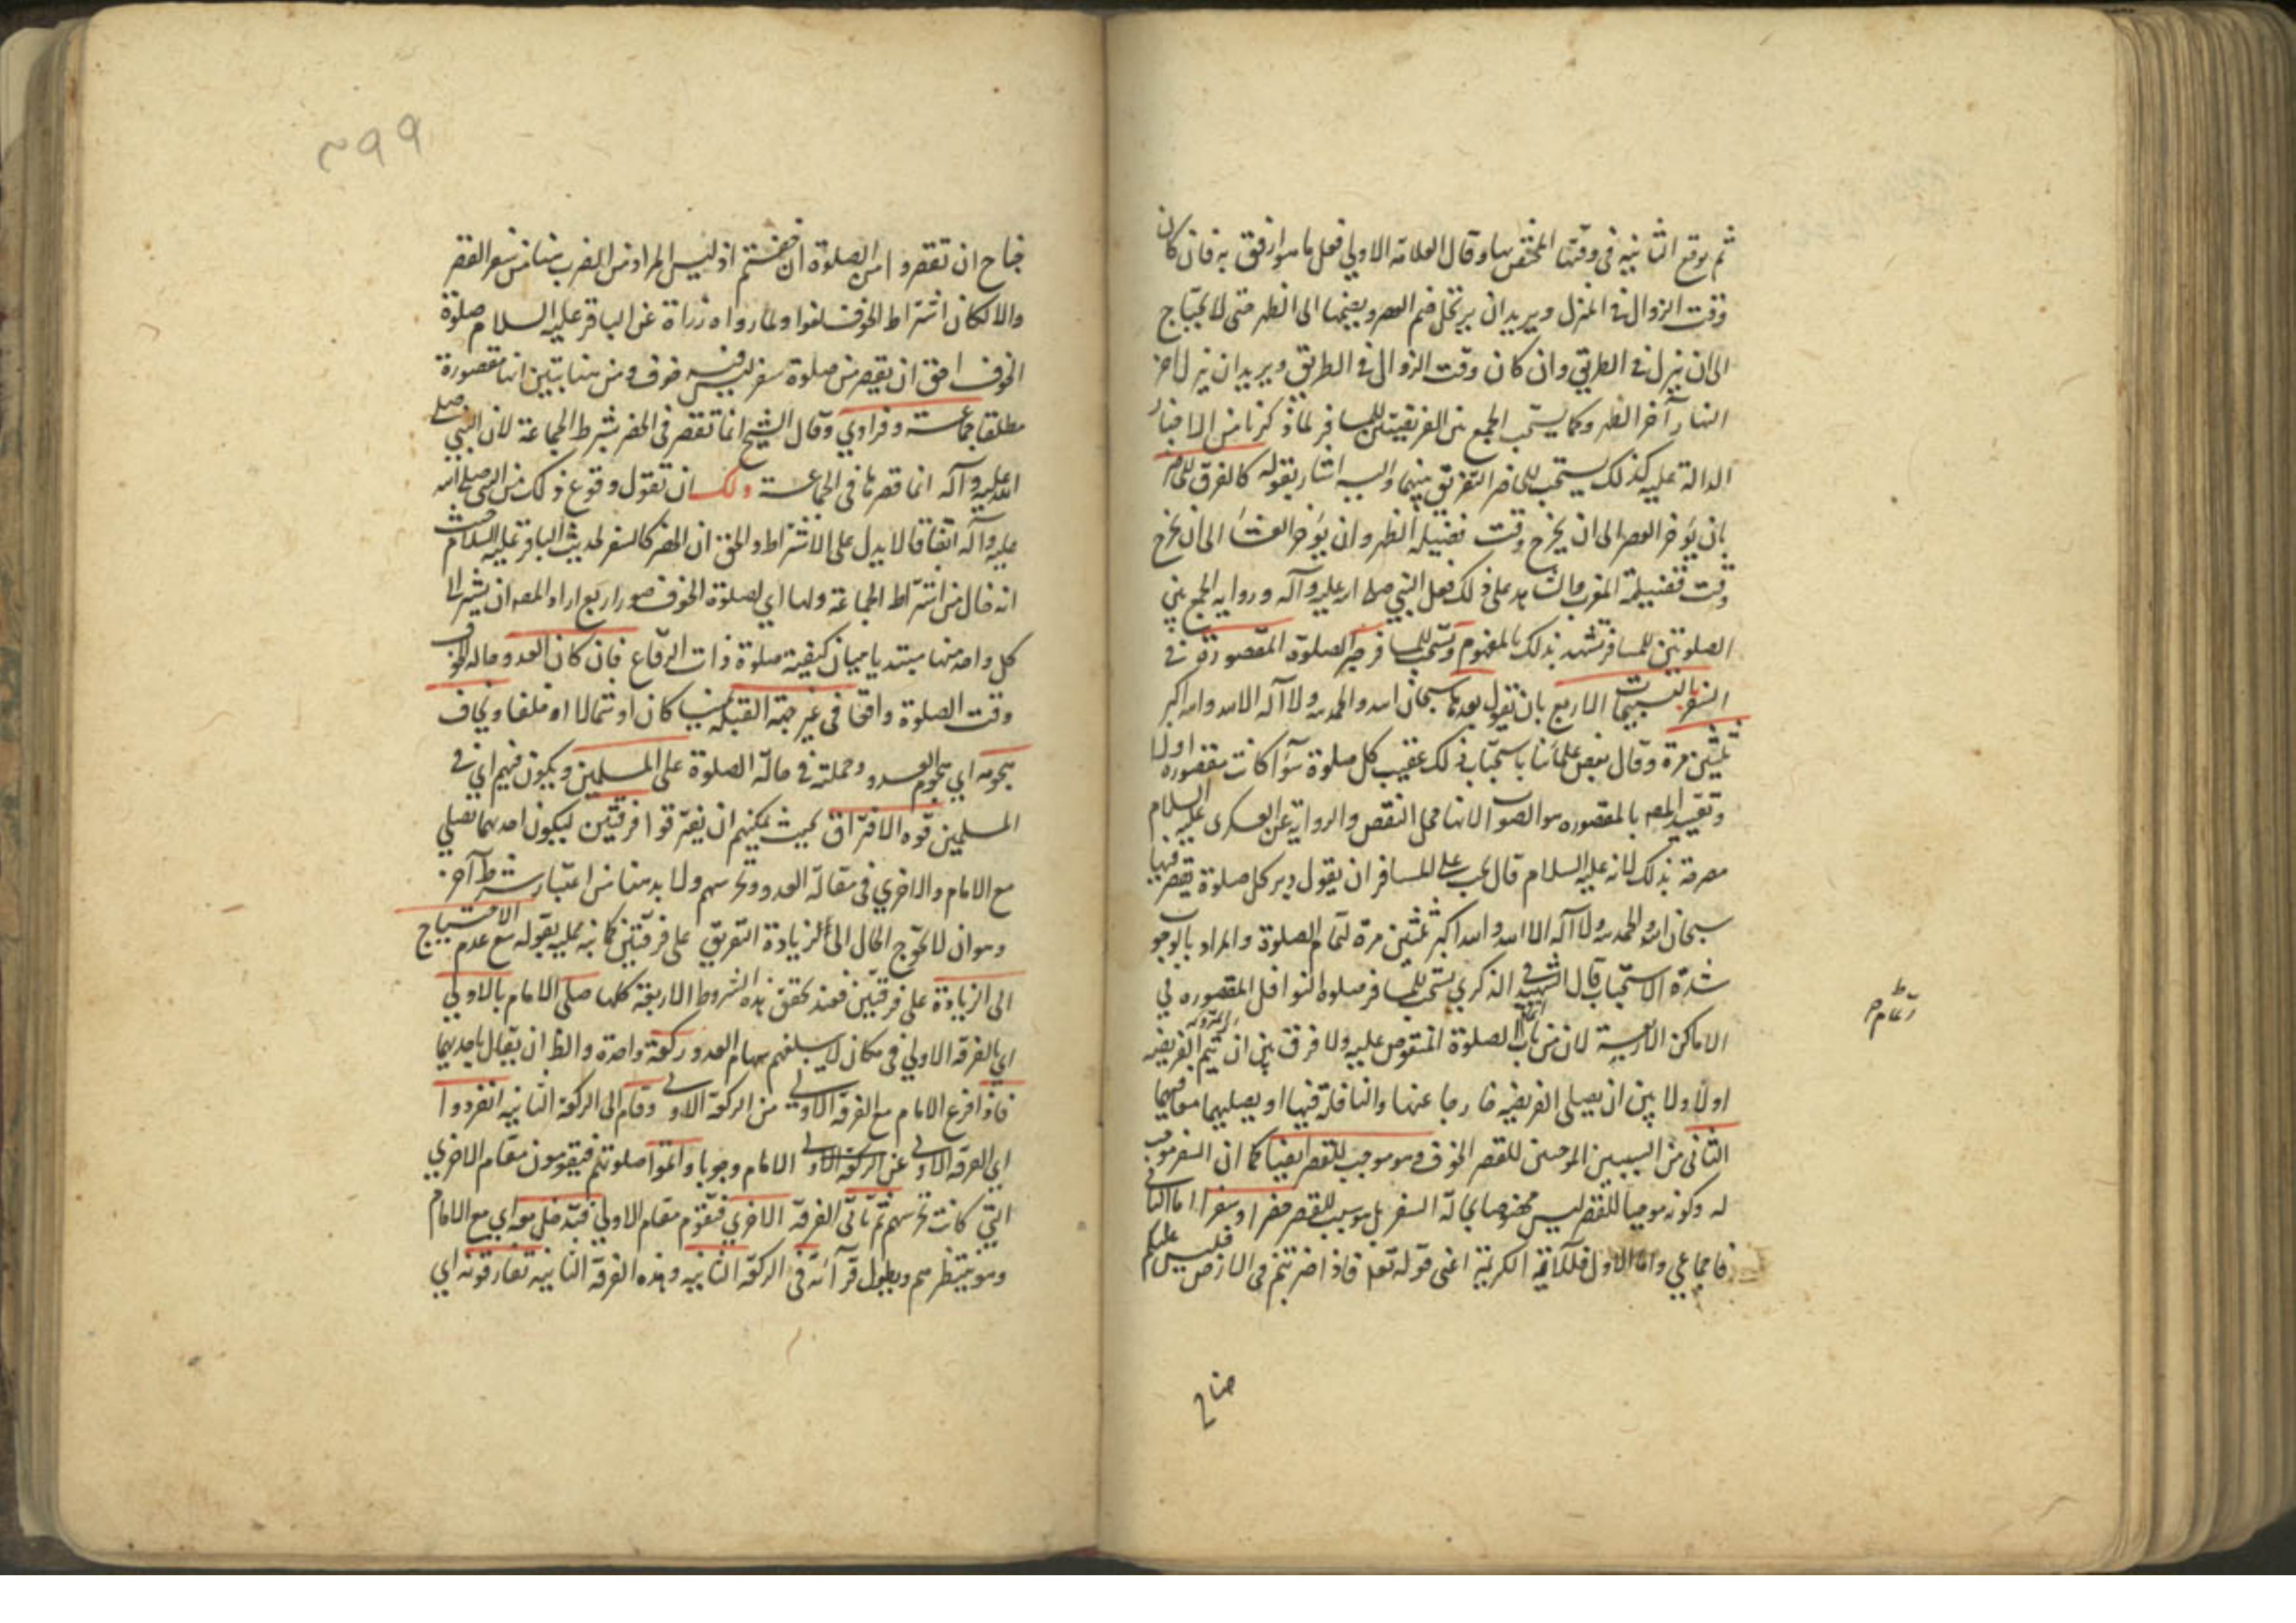 ثم يوقع الثانية فى وقتها المختص بها وقال العلامة الاولى فعل ما هو ارفق به فان كان
وقت الزوال فى المنزل ويريد ان يرتحل ضم العصر وبضمها الى الظهر حتى لا يحتاج
الى ان ينزل فى الطريق وان كان وقت الزوال فى الطريق ويريد ان ينزل آخر
النهار آخر الظهر وكما يستحب الجمع بين الفريضتين للمسافر لما ذكرنا من الاخبار
الدالة عليه كذلك يستحب للحاضر التفريق بينهما واليه اشار بقوله كالفرق للحاضر
بان يؤخر العصر الى ان يخرج وقت فضيلة الظهر وان يؤخر العشاء الى ان يخرج
وقت فضيلة المغرب والشاهد على ذلك فعل النبى صلى الله عليه وآله ورواية الجمع بين
الصلوتين للمسافر تشهد بذلك بالمفهوم ويستحب للمسافر جبر الصلوة المقصورة فى
السفر بالتسبيحات الاربع بان تقول بعدها سبحان الله والحمد لله ولا اله الا الله والله اكبر
ثلثين مرة وقال بعض علمائنا باستحباب ذلك عقيب كل صلوة سواء كانت مقصوره اولا
وتقييد المصه بالمقصوره هو الصواب لانها محل النقص والرواية عن العسكرى عليه السلام
مصرحة بذلك لانه عليه السلام قال يجب على المسافر ان يقول دبر كل صلوة يقصر فيها
سبحان الله والحمد لله ولا اله الا الله والله اكبر ثلثين مرة لتمام الصلوة والمراد بالوجوب
شدة الاستحباب قال الشهيد فى الذكرى يستحب للمسافر صلوة النوافل المقصوره فى
الاماكن الاربعة لان من باب اتمام الصلوة المنصوص عليه ولا فرق بين ان يتم الفريضة
اولا ولا بين ان يصلى الفريضه خارجا عنها والنافلة فيها او يصليهما معا فيها
الثانى من السببين الموجبين للقصر الخوف وهو موجب للقصر ايضا كما ان السفر موجب
له وكونه موجبا للقصر ليس مخصوصا بحالة السفر بل هو سبب للقصر حضرا او سفرا اما الثانى
فاجماعى واما الاول فللآية الكريمة اعنى قوله تعالى فاذا ضربتم فى الارض فليس عليكم
جناح
جناح ان تقصروا من الصلوة ان خفتم اذ ليس المراد من الضرب هنا من سفر القصر
والا لكان اشتراط الخوف لغوا ولما رواه زرارة عن الباقر عليه السلام صلوة
الخوف احق ان يقصر من صلوة سفر ليس فيه خوف ومن هنا تبين انها مقصورة
مطلقا جماعة وفرادى وقال الشيخ انما تقصر فى الحضر بشرط الجماعة لان النبى صلى
الله عليه وآله انما قصرها فى الجماعة ولك ان تقول وقوع ذلك من النبى صلى الله
عليه وآله اتفاقا لا يدل على الاشتراط والحق ان الحضر كالسفر لحديث الباقر عليه السلام حيث
انه خال من اشتراط الجماعة ولها اى لصلوة الخوف صور اربع اراد المصه ان يشير الى
كل واحد منها مبتديا ببيان كيفية صلوة ذات الرقاع فان كان العدو حالة الخوف
وقت الصلوة واقفا فى غير جهة القبلة يمينا كان او شمالا او خلفا ويخاف
هجومه اى هجوم العدو وحملته فى حالة الصلوة على المسلمين ويكون فيهم اى فى
المسلمين قوه الافتراق بحيث يمكنهم ان يفترقوا فرقتين ليكون احديهما تصلى
مع الامام والاخرى فى مقابلة العدو وتحرسهم ولا بد هنا من اعتبار شرط آخر
وهو ان لا يحوج الحال الى الزيادة التفريق على فرقتين كما نبه عليه بقوله مع عدم الاحتياج
الى الزيادة على فرقتين فعند تحقق هذه الشروط الاربعة كلها صلى الامام بالاولى
اى بالفرقة الاولى فى مكان لا يبلغهم سهام العدو ركعة واحدة والظ ان يقال باحديهما
فاذا فرغ الامام مع الفرقة الاولى من الركعة الاولى وقام الى الركعة الثانية انفردوا
اى الفرقة الاولى عن الركعة الاولى الامام وجوبا واتموا صلوتهم فيقومون مقام الاخرى
التى كانت تحرسهم ثم تأتى الفرقة الاخرى فتقوم مقام الاولى فتدخل معه اى مع الامام
وهو ينتظرهم ويطول قرآئته فى الركعة الثانية وهذه الفرقة الثانية تفارقونه اى